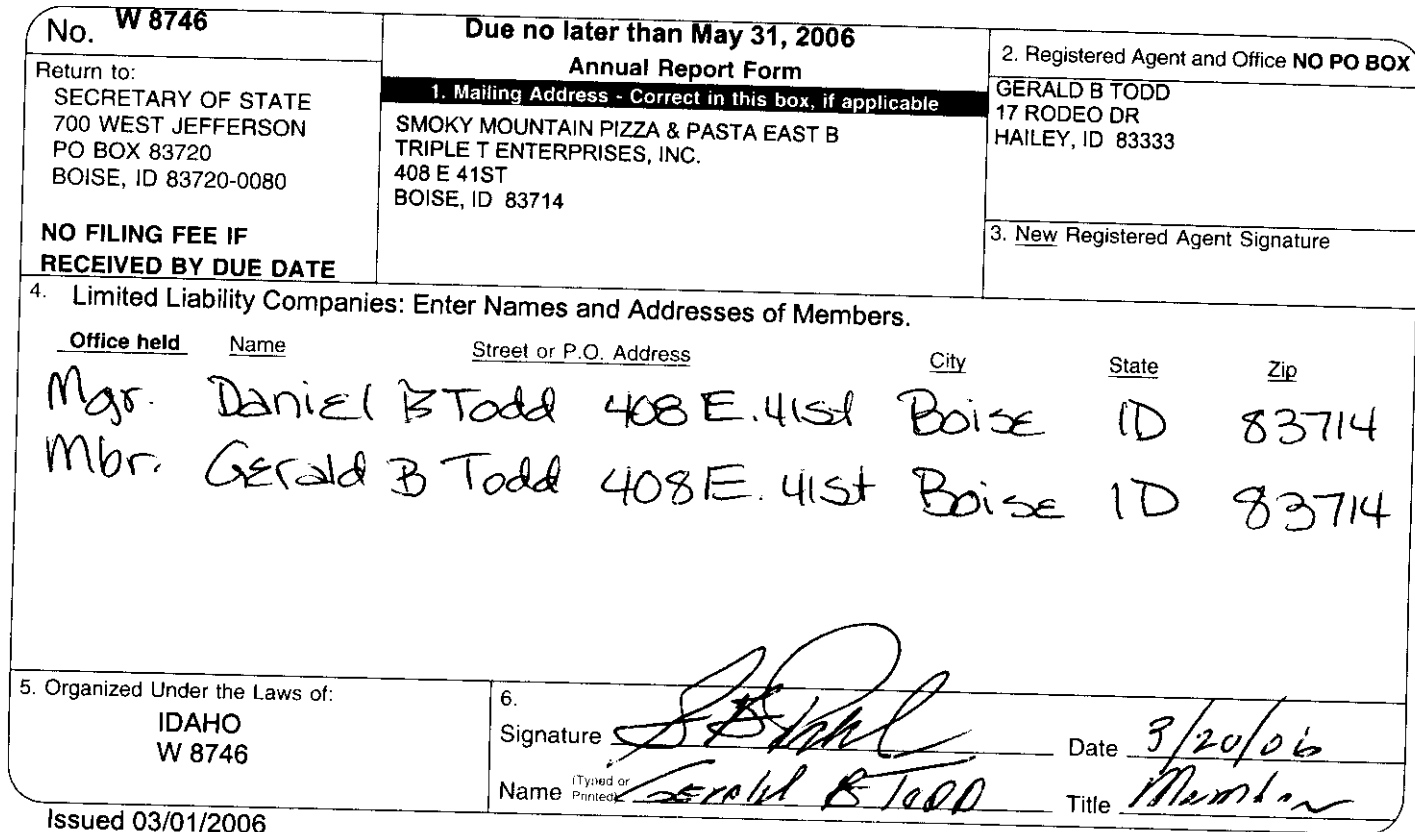 No. W 8746
Due no later than May 31, 2006
Annual Report Form
Return to:
SECRETARY OF STATE
700 WEST JEFFERSON
PO BOX 83720
BOISE, ID 83720-0080
NO FILING FEE IF
RECEIVED BY DUE DATE
1. Mailing Address - Correct in this box, if applicable
SMOKY MOUNTAIN PIZZA & PASTA EAST B
TRIPLE T ENTERPRISES, INC.
408 E 41ST
BOISE, ID 83714
2. Registered Agent and Office NO PO BOX
GERALD B TODD
17 RODEO DR
HAILEY, ID 83333
3. New Registered Agent Signature
4. Limited Liability Companies: Enter Names and Addresses of Members.
Office held Name Street or P.O. Address City State Zip
Mgr. Daniel B Todd 408 E. 41st Boise ID 83714
Mbr. Gerald B Todd 408 E. 41st Boise ID 83714
5. Organized Under the Laws of:
IDAHO
W 8746
6.
Signature Date 3/20/06
Name (Typed or Printed) Gerald B TODD Title Member
Issued 03/01/2006